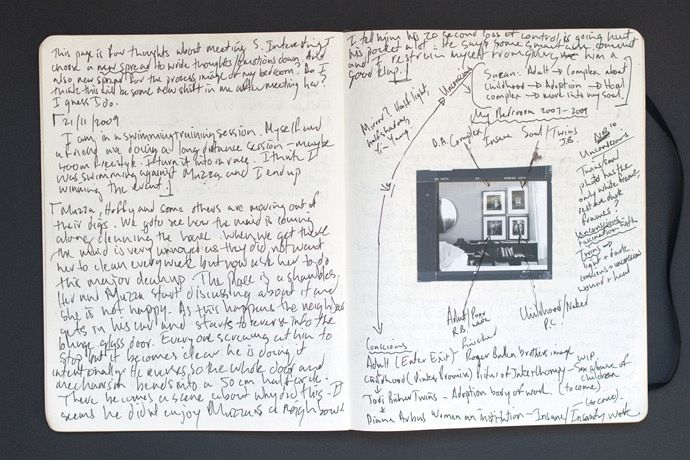 This page is for thoughts about meeting S. Interesting I
choose a new spread to write thoughts/emotions down. And
also new spread for the process image of my bedroom. Do I
think this will be some new shift in me after meeting her?
I guess I do.
21/11/2009
I am in a swimming training session. Myself and
a friend are doing a long distance session - maybe
400m freestyle. I turn it into a race. I think I
was swimming against Muzza and I end up
winning the event.]
[Muzza, Hobby and some others are moving out of
their digs. We go to see how the maid is coming
along cleaning the house. When we get there
the maid is very annoyed as they did not want
her to clean every week but now ask her to do
this major cleanup. The place is a shambles.
Her and Muzza start discussing about it and
she is not happy. As this happens the neighbour
gets in his car and starts to reverse into the
lounge glass door. Everyone screams at him to
stop but it becomes clear he is doing it
intentionally. He reverses so the whole door and
mechanism bends into a 50cm half circle.
There becomes a scene about why did this - It
seems he didn't enjoy Muzza as a neighbour
I tell him his 20 second loss of control is going hurt
his pocket a lot. He says some
and I restrain myself from giving him a
good slap.]
Unconscious
Suzan. Adult → Complex about
childhood → Adoption → Heal
complex → move into my soul.
My Bedroom 2007-2009
Mirror? Half light,
half shadow,
Yin Yang
D.A. Complex
Insane
Soul/Twins
J.B.
NB
Unconscious
Trans/Soul
photo has the
only white frame,
rest are dark
frames?
Unconscious
fascination with
Twins →
light + dark
conscious + unconscious
wound + heal
Adult/Poor
R.B.
Princher
Childhood/Naked
P.C.
Conscious
Adult (Enter Exit) - Roger Ballen brother image
Childhood (Pinky Promise) Picture of Inter-therapy - Sex abuse of
W.I.P.
children
Twins - Adoption body of work. (to come)
(to come)
Diane Arbus Women an institution - Insane/Insanity work